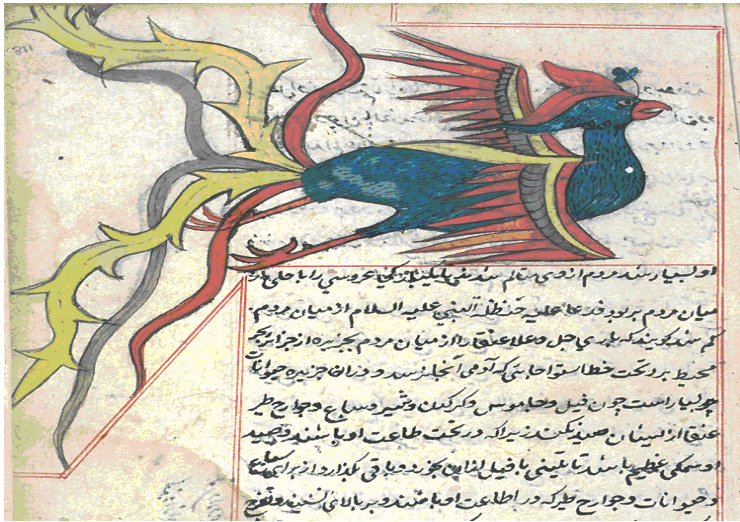 او بسیار شد مردم از وی سالم شدندی تا یکبار عروسی را با حلی از
میان مردم بربود فدعا علیه حنظلة النبی علیه السلام از میان مردم
کم شد گویند که باری جل و علا عنقا را از میان مردم بجزیره از جزایر بحر
محیط برد تحت خط استوا جایی که آدمی آنجا نرسد و در آن جزیره حیوانات
چو بسیار است چون فیل و جاموس و کرکدن و شیر و سباع و جوارح طیر
عنقا از ایشان صید نکند زیرا که در تحت طاعت او باشند و صید
او سمکی عظیم باشد تا تنینی یا فیل از این بخورد و باقی بگذارد از برای سباع
و حیوانات و جوارح طیر که در اطاعت او باشند و بر بالای نشیند و تفرج